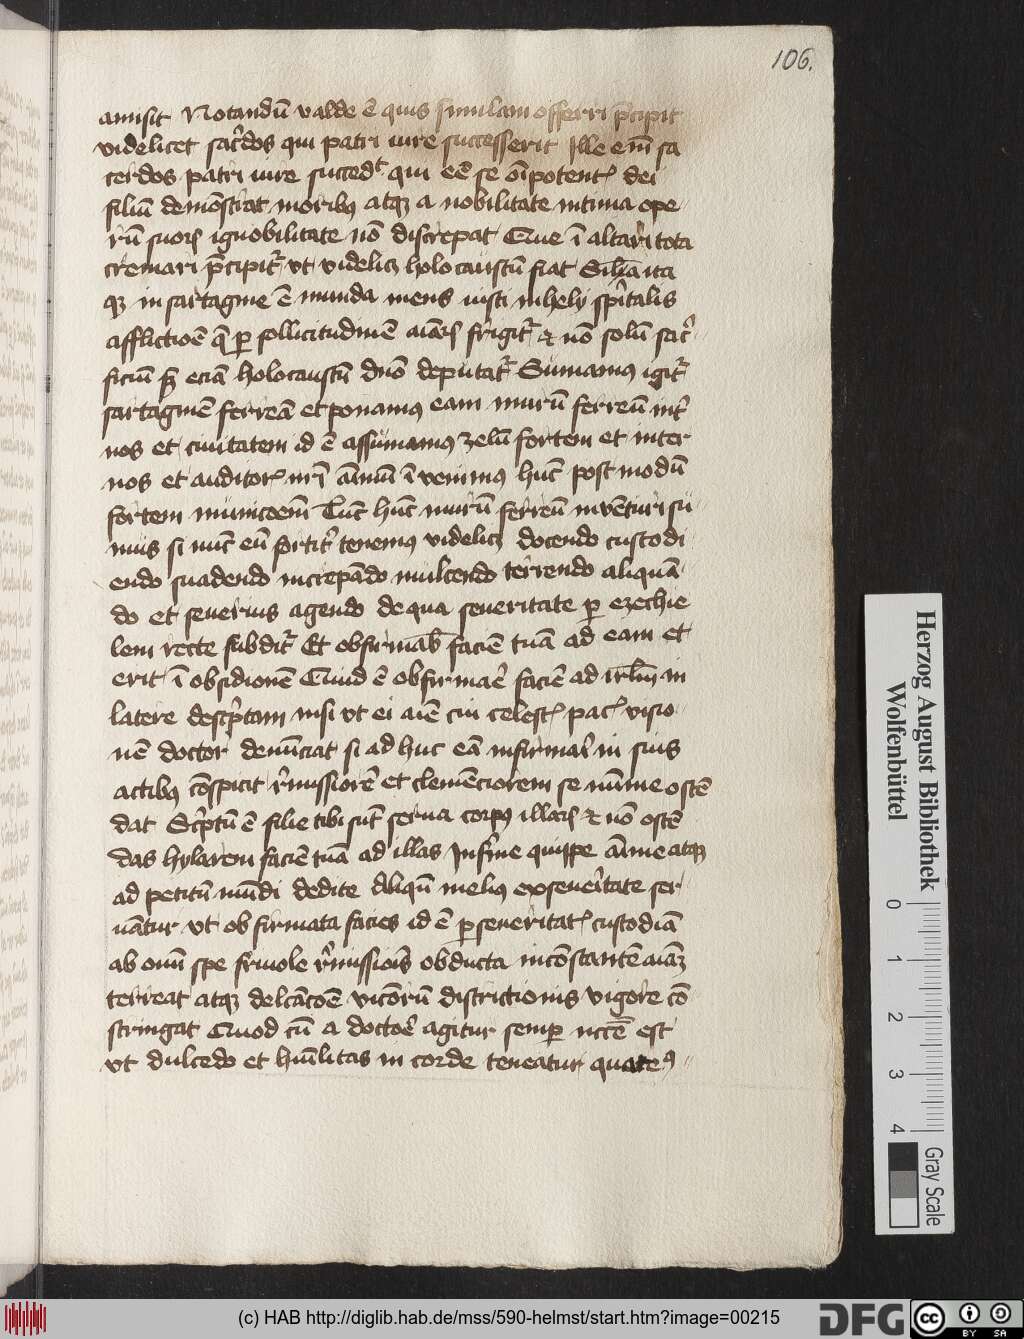 106.
amisit Notandū valde ē quis similam offerri p̄cipit
videlicet sac̄dos qui patri iure successerit Ille em̄ sa
cerdos patri iure succedᵗ qui eē se oīpotent dei
filiū demōstrat moribꝰ atqꝫ a nobilitate intima ope
rū suoꝝ ignobilitate nō discrepat Que ī altari tota
cremari p̄cipit̄ ut videlicꝫ holocaustū fiat Sihā ita
qꝫ in sartagine ē munda mens iusti in helÿ sp̄italis
afflictioē q̄ ꝑ sollicitudinē aīaꝝ frigit̄ & nō solū sac̄
ficiū sꝫ eciā holocaustū dn̄o deputat̄ Sumamꝰ igit̄
sartaginē ferreā et ponamꝰ eam murū ferreū int̄
nos et ciuitatem id ē assumamꝰ zelū fortem et inter
nos et auditoꝝ nrī aīmū īvenimꝰ hūc post modū
fortem municoēm Tūc hūc murū ferreū inventuri sū
mus si nūc eū fortit̄ tenemꝰ videlicꝫ docendo custodi
endo suadendo increpādo mulcendo terrendo aliquā
do et seuerius agendo de qua seueritate ꝑ ezechie
lem recte subdit̄ Et obfirmab̄ faciē tuā ad eam et
erit ī obsidionē Quid ē obfirmar̄e faciē ad irl̄m in
latere descp̄tam nisi ut ei aīe cui celest pac visio
nē doctor denūciat si ad huc eā infirmar̄i in suis
actibꝰ cōspicit r̄missiorē et clemēciorem se mīme ostē
dat Sc̄ptū ē filie tibi sūt serua corpꝰ illaꝝ & nō ostē
das hylarem faciē tuā ad illas Infirme quippe aīme atqꝫ
ad petitū mūdi dedite aliqn̄ melius ex seueritate ser
uātur ut obfirmata facies id ē ꝑ seueritat custodiā
ab om̄i spe friuole r̄missiōis obducta incōstantē aīaꝫ
terreat atqꝫ delcātoē vicōrū districtionis vigore cō
stringat Quod cū a doctoē agitur semꝑ nccē est
ut dulcedo et hūilitas in corde teneatur quateꝰ
Herzog August Bibliothek
Wolfenbüttel
0 1 2 3 4
Gray Scale
(c) HAB http://diglib.hab.de/mss/590-helmst/start.htm?image=00215
DFG
cc BY SA